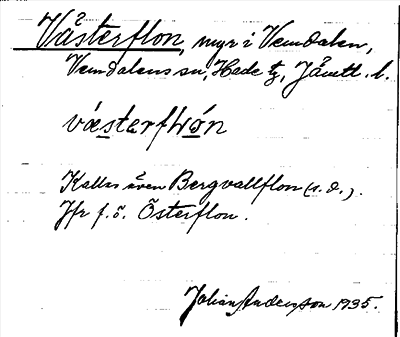 Västerflon, myr i Vemdalen,
Vemdalens sn, Hede tg, Jämtl. l.
væsterfLón
Kallas även Bergvallflon (s. d.).
Jfr f. ö. Österflon.
Johan Andersson 1935.